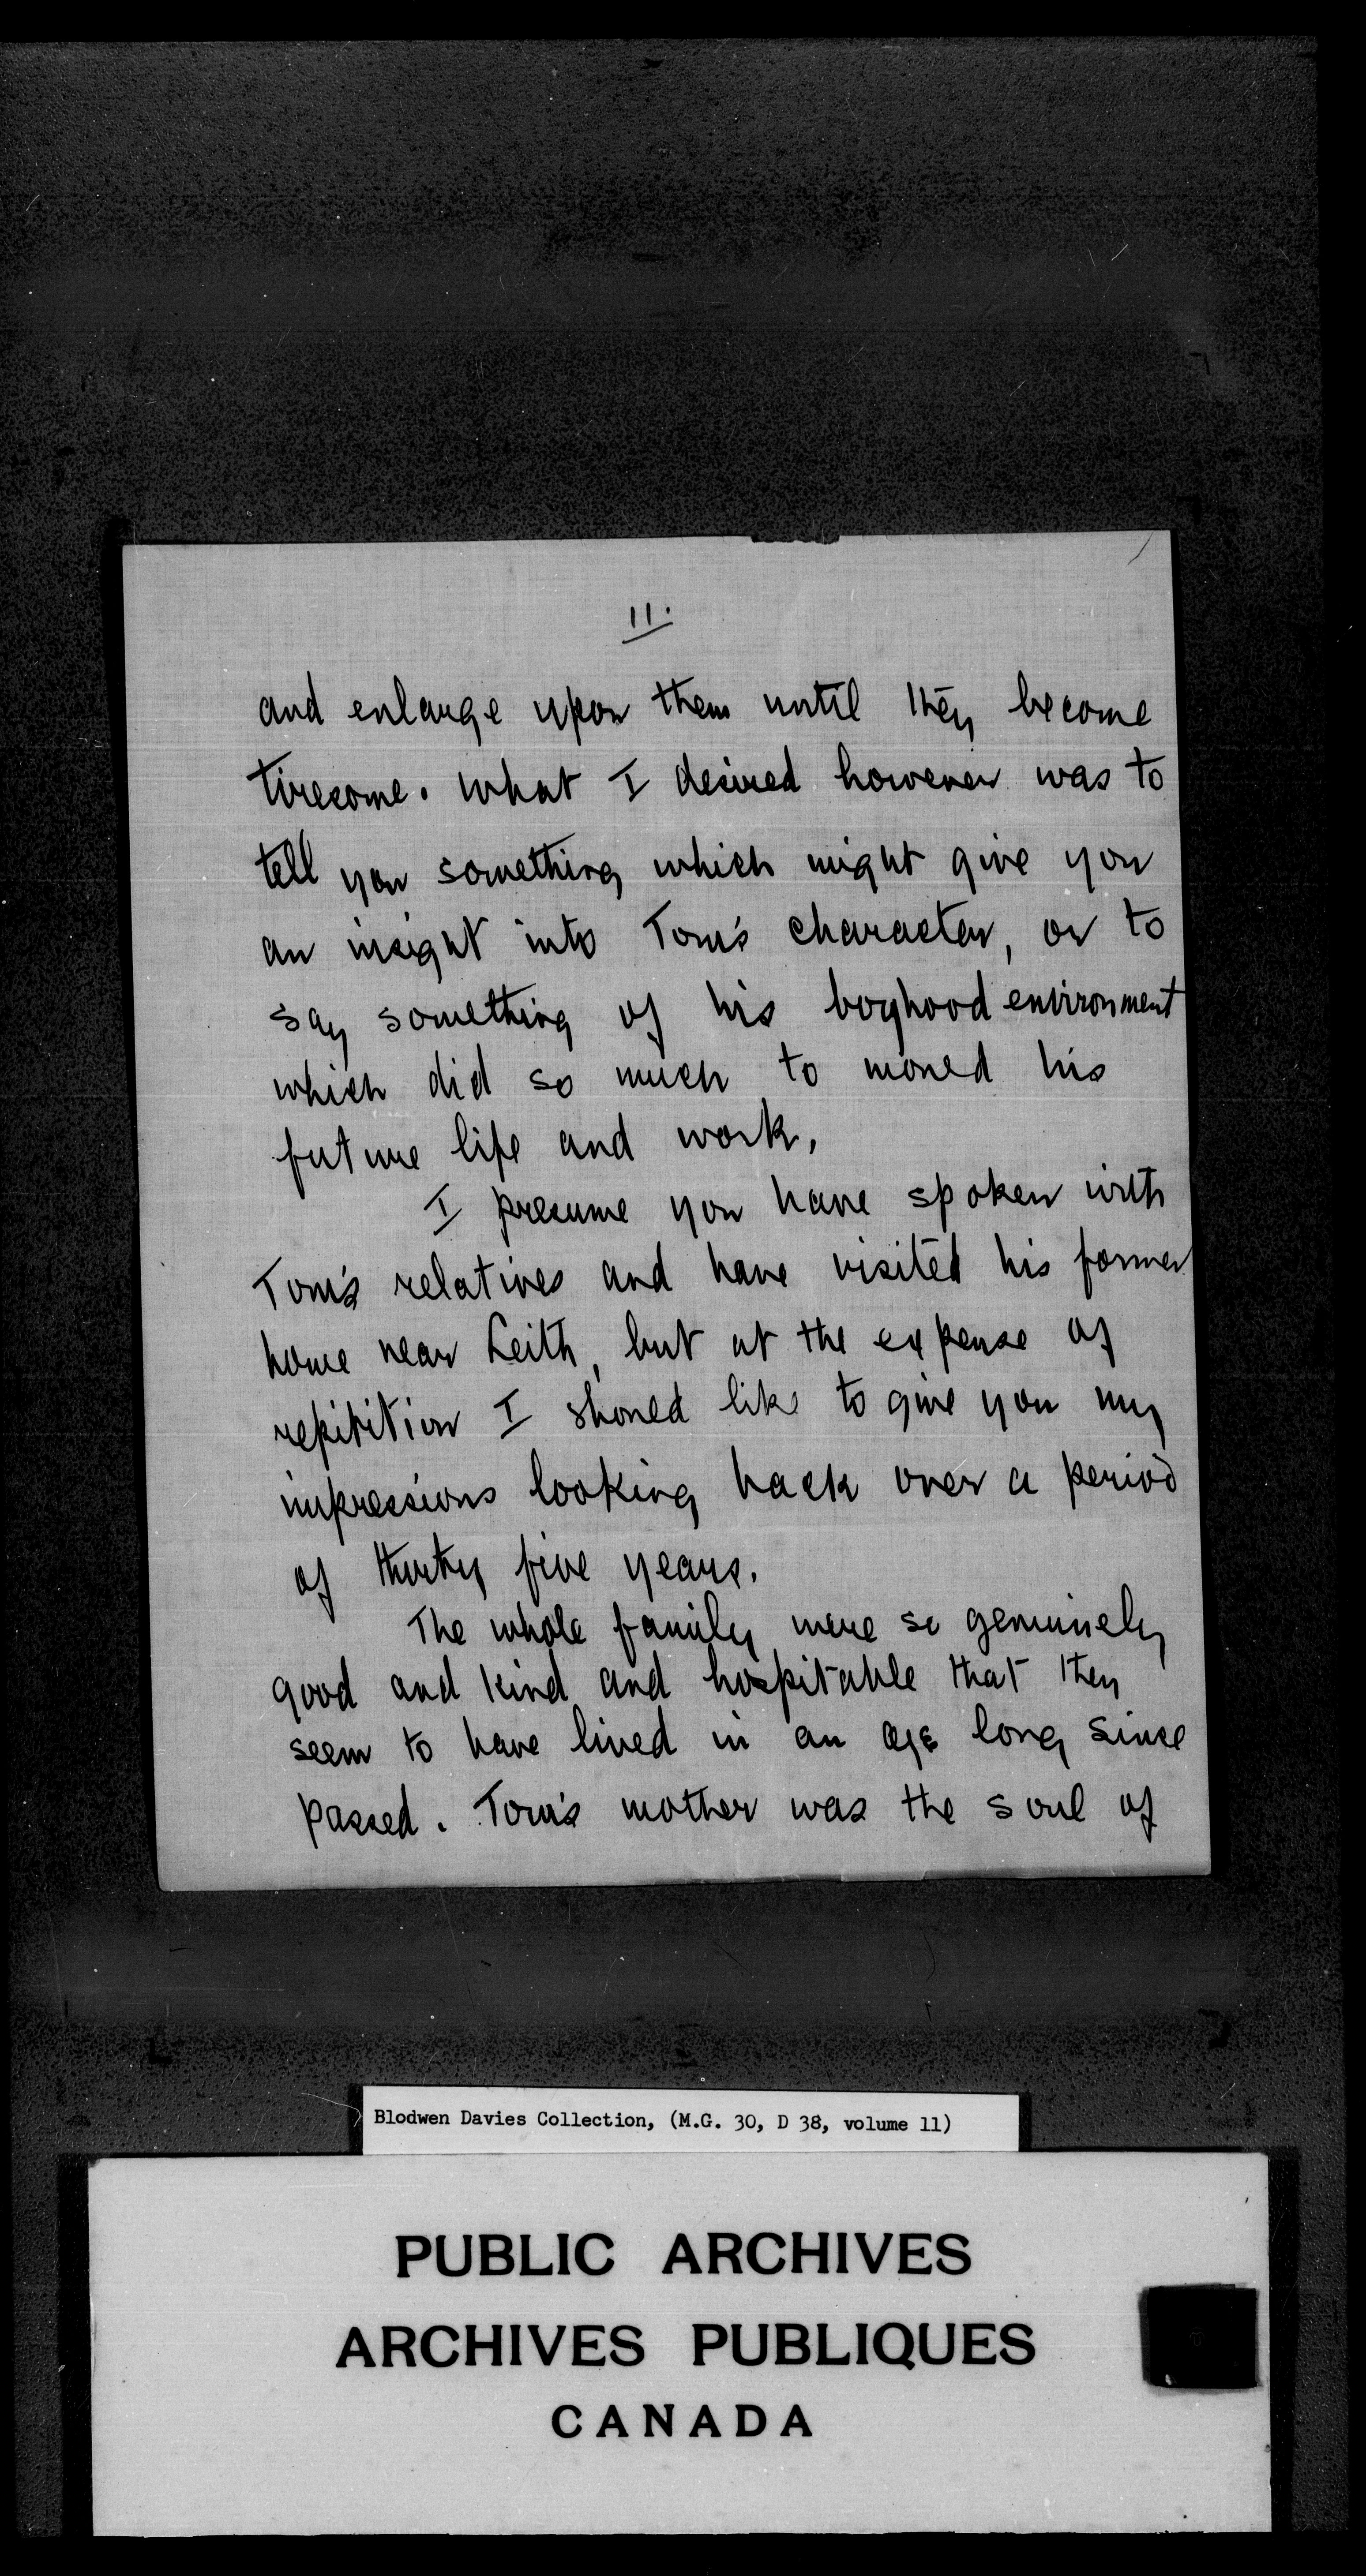 11.
and enlarge upon them until they become
tiresome. What I desired however was to
tell you something which might give you
an insight into Tom's character, or to
say something of his boyhood environment
which did so much to mould his
future life and work.
I presume you have spoken with
Tom's relatives and have visited his former
home near Leith, but at the expense of
repitition I should like to give you my
impressions looking back over a period
of thirty five years.
The whole family were so genuinely
good and kind and hospitable that they
seem to have lived in an age long since
passed. Tom's mother was the soul of
Blodwen Davies Collection, (M.G. 30, D 38, volume 11)
PUBLIC ARCHIVES
ARCHIVES PUBLIQUES
CANADA